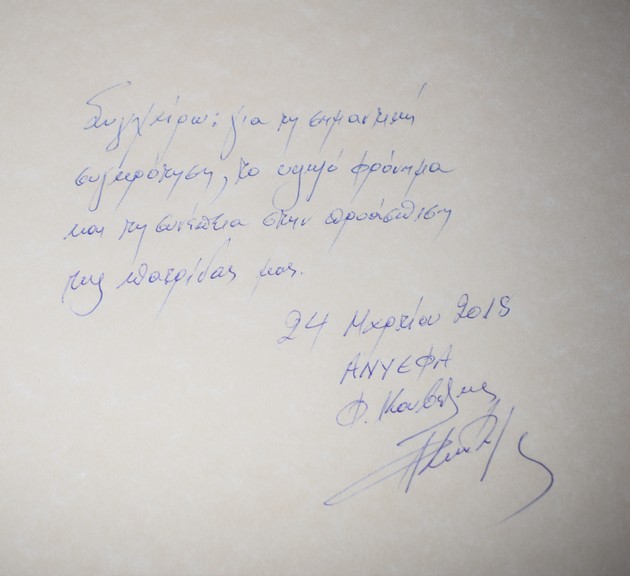 Συγχαίρω: για τη σημαντική
συγκρότηση, το υψηλό φρόνημα
και τη συνέπεια στην προάσπιση
της πατρίδας μας.
24 Μαρτίου 2018
ΑΝΥΕΘΑ
Φ. Κουβέλης